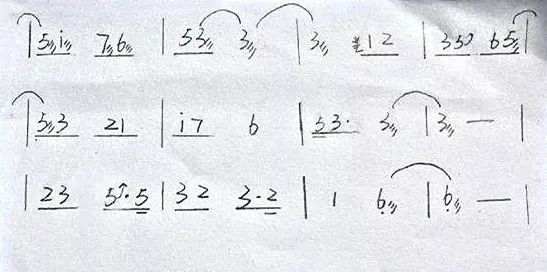 | 5 i 7 6 | 5 3 3 | 3 1 2 | 3 5 6 5 |
| 5 3 2 1 | i 7 6 | 5 3 · 3 | 3 — |
| 2 3 5 · 5 | 3 2 3 · 2 | 1 6 | 6 — |